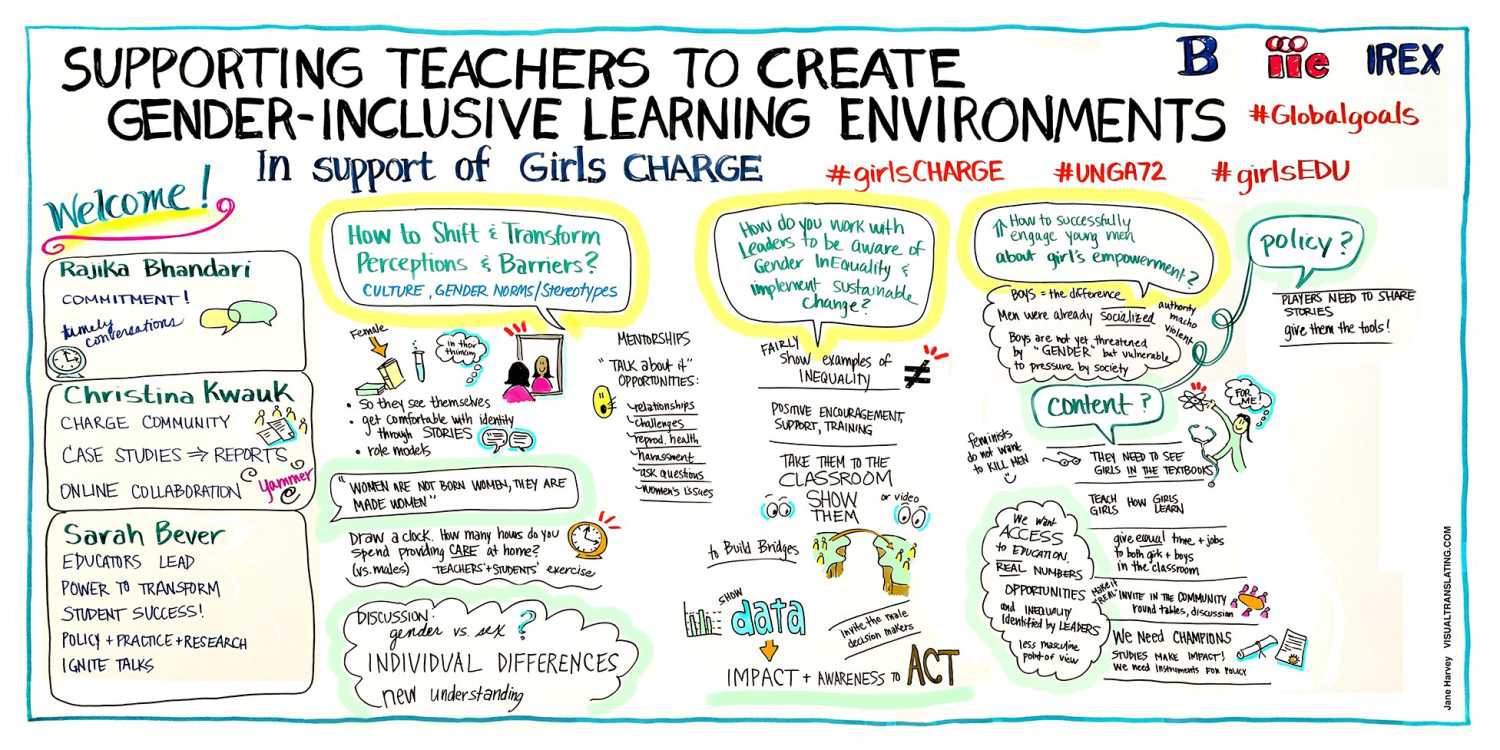 SUPPORTING TEACHERS TO CREATE
GENDER-INCLUSIVE LEARNING ENVIRONMENTS
In support of Girls CHARGE
B
iie
IREX
#Globalgoals
#girlsCHARGE
#UNGA72
#girlsEDU
Welcome!
Rajika Bhandari
COMMITMENT!
timely
conversations
Christina Kwauk
CHARGE COMMUNITY
CASE STUDIES ⇒ REPORTS
ONLINE COLLABORATION
yammer
Sarah Bever
EDUCATORS LEAD
POWER TO TRANSFORM
STUDENT SUCCESS!
POLICY + PRACTICE + RESEARCH
IGNITE TALKS
How to Shift & Transform
Perceptions & Barriers?
CULTURE, GENDER NORMS/Stereotypes
Female
in their
thinking
• so they see themselves
• get comfortable with identity
through STORIES
• role models
MENTORSHIPS
"TALK about it"
OPPORTUNITIES:
relationships
challenges
reprod. health
harassment
ask questions
women's issues
"WOMEN ARE NOT BORN WOMEN, THEY ARE
MADE WOMEN"
Draw a clock. How many hours do you
spend providing CARE at home?
(vs. males) TEACHERS' + STUDENTS' exercise
DISCUSSION:
gender vs. sex ?
INDIVIDUAL DIFFERENCES
new understanding
How do you work with
Leaders to be aware of
Gender InEquality &
implement sustainable
change?
FAIRLY
Show examples of
INEQUALITY
≠
POSITIVE ENCOURAGEMENT,
SUPPORT, TRAINING
TAKE THEM TO THE
CLASSROOM
SHOW
THEM
or video
to Build Bridges
SHOW
data
Invite the male
decision makers
IMPACT + AWARENESS to ACT
How to successfully
engage young men
about girl's empowerment?
BOYS = the difference
Men were already socialized
authority
macho
violent
Boys are not yet threatened
by "GENDER" but vulnerable
to pressure by society
policy?
PLAYERS NEED TO SHARE
STORIES
give them the tools!
content?
FOR
ME!
feminists
do not want
to KILL MEN
THEY NEED TO SEE
GIRLS IN THE TEXTBOOKS
TEACH HOW GIRLS
GIRLS LEARN
We want
ACCESS
to EDUCATION,
REAL NUMBERS
OPPORTUNITIES
and INEQUALITY
identified by LEADERS
less masculine
point of view
give equal time + jobs
to both girls + boys
in the classroom
make it
"REAL"
INVITE IN THE COMMUNITY
round tables, discussion
We Need CHAMPIONS
STUDIES MAKE IMPACT!
We need instruments FOR POLICY
Jane Harvey VISUALTRANSLATING.COM